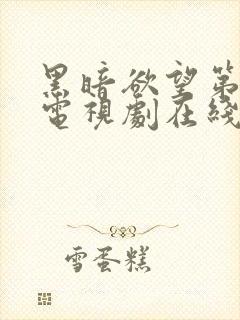 黑暗欲望第
電視劇在綫
雪蛋糕